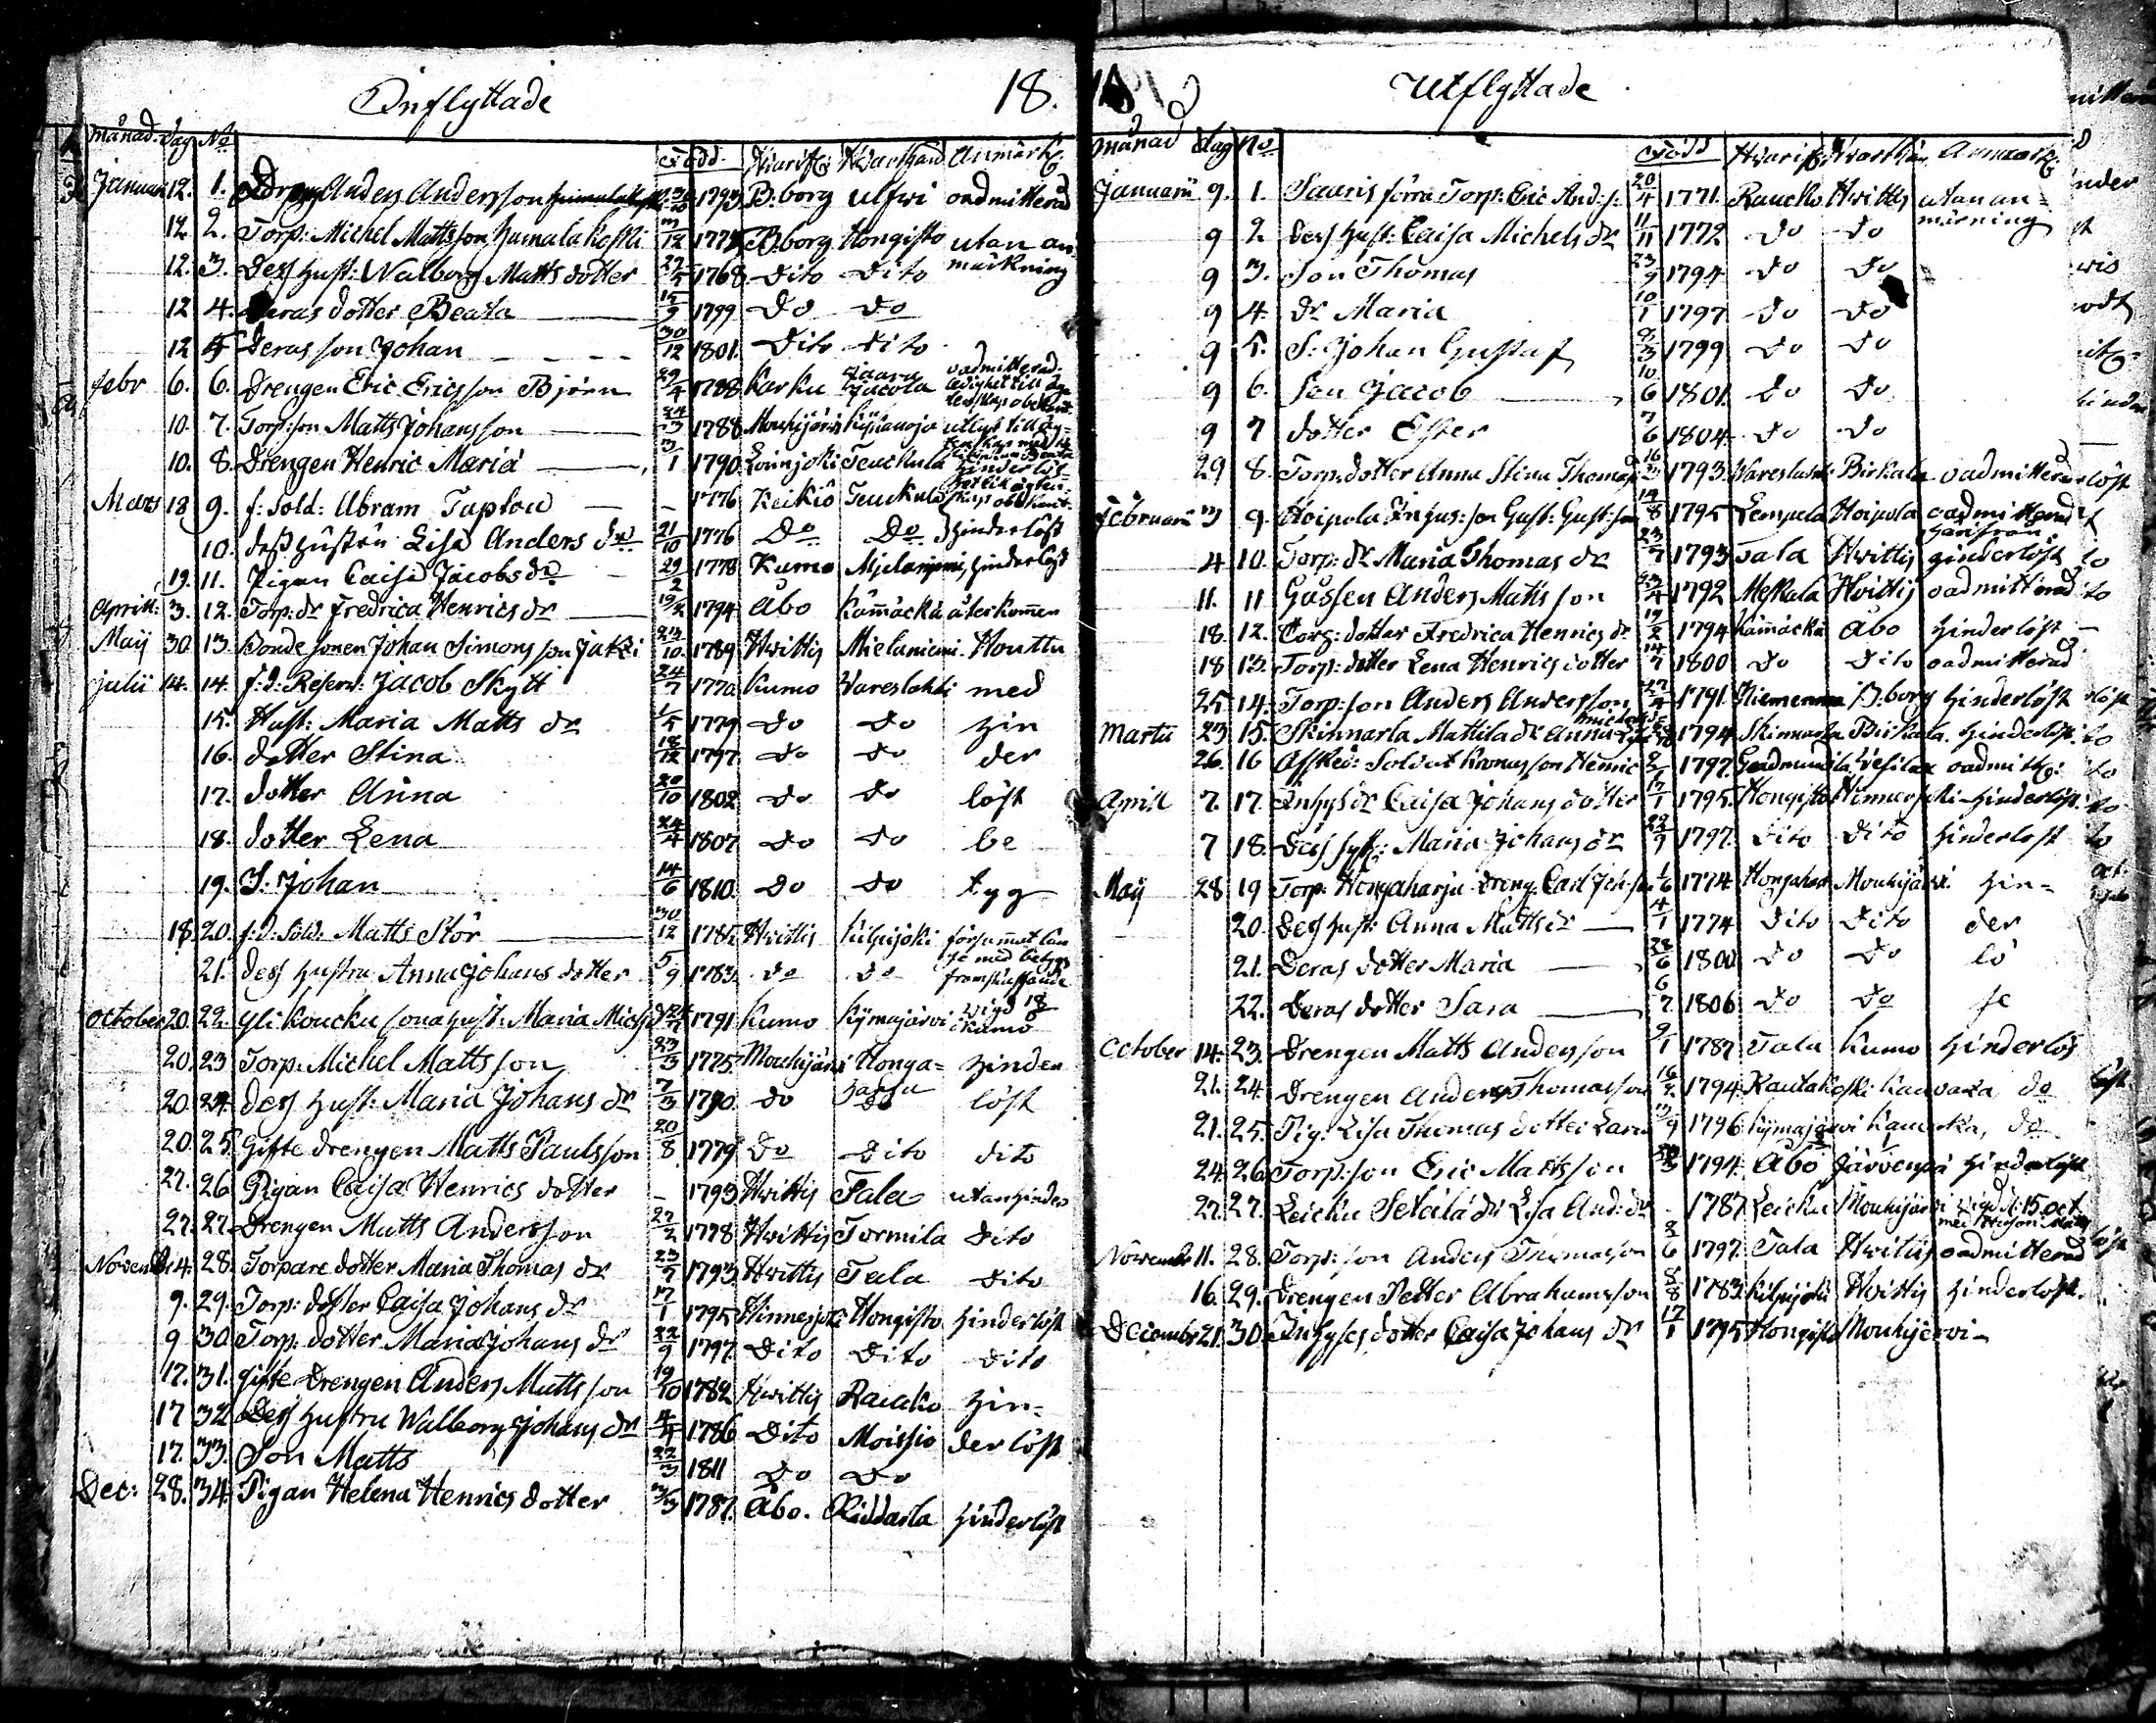 Inflyttade 18.
månad. Dag No Född. Hvarifr: Hvarthän Anmärk:
Januari 12. 1. Dreng Anders Andersson 1793 B:borg Ulfwi oadmitterad
12. 2. Torp: Michel Mattsson Humalakoski B:borg Hongisto utan an
12. 3. Dess hust: Walborg Matts dotter 1768 Dito Dito märkning
12 4. Deras dotter Beata 1799 Do Do
12 5 Deras son Johan 30/12 1801. Dito Dito
febr 6. 6. Drengen Eric Ericsson Björn 29/4 1788 Karku Jacola oadmitterad.
10. 7. Torp: son Matts Johansson 1788 Mouhijärvi
10. 8. Drengen Henric Maria 3/1 1790 Loimjoki Teuckula
Mars 18 9. f: Sold: Abram Taplou - 1776 Keikiö Teuckula
10. dess hustru Lisa Anders dr 21/10 1776 Do Do hinderlöst
19. 11. Pigan Caisa Jacobs dr 29/2 1778 Kumo hinderlöst
Aprill: 3. 12. Torp: dr Fredrica Henrics dr 19/2 1794 Åbo Kämäckä återkommen
Maij 30 13. Bonde sonen Johan Simonsson Jakki 1789 Hvittis Mielaniemi.
Julii 14. 14. f:d: Reserv: Jacob Skytt 24/7 1770 Kumo Vareslahti med
15. Hust: Maria Matts dr 1/5 1779 Do Do hin
16. dotter Stina 18/12 1797 Do Do der
17. dotter Anna 20/10 1802 Do Do löst
18. dotter Lena 24/4 1807 Do Do be
19. S: Johan 14/6 1810. Do Do tyg
18. 20. f:d. Sold: Matts Stör 30/12 1785 Hvittis Kilpijoki
21. dess hustru Anna Johans dotter 5/9 1783. do do
October 20. 22. Yli Koucku sona hust: Maria Mich: 1791 Kumo Kymäjärvi
20. 23 Torp: Michel Mattsson 23/3 1775 Mouhijärvi Honga= hinder
20. 24. dess hust: Maria Johans dr 7/3 1790. do harju do löst
20. 25. Gifte drengen Matts Paulsson 20/8 1779 Do Dito dito
27. 26 Pigan Caisa Henrics dotter - 1793. Hvittis Tala utan hinder
27. 27. Drengen Matts Andersson 27/2 1778 Hvittis Tormila Dito
Novemb: 4. 28. Torpare dotter Maria Thomas dr 23/7 1793. Hvittis Tala Dito
9. 29. Torp: dotter Caisa Johans dr 17/1 1795 Hinnerjoki Hongisto hinderlöst
9 30 Torp: dotter Maria Johans dr 22/9 1797. Dito Dito Dito
17. 31. gifte Drengen Anders Mattsson 19/10 1782 Hvittis Raucko hin=
17 32 Dess hustru Walborg Johans dr 1786 Dito Moissio der löst
17. 33. Son Matts 22/3 1811 Do Do
Dec: 28. 34 Pigan Helena Henrics dotter 1787. Åbo. Riddarla hinderlöst
Utflyttade
månad dag No Född Hvarifr: Hvarthän Anmärk:
Januarii 9. 1. Sauris förra Torp: Eric And:s: 20/4 1771. Raucko Hvittis utan an=
9 2 dess hust: Caisa Michels dr 11/11 1772 Do Do märkning
9 3. Son Thomas 23/9 1794 Do Do
9 4. Dr Maria 10/1 1797 Do Do
9 5. S: Johan Gustaf 9/3 1799 Do Do
9 6. Son Jacob 10/6 1801. Do Do
9 7 dotter Ester 7/6 1804 Do Do
29 8. Torp: dotter Anna Stina Thomas 1793. Vareslahti Birkala oadmitterad
Februarii 3 9. Hoipola Inhys: son Gust: Gust: son 1795 Lempula Hoipola oadmitterad
4 10. Torp: dr Maria Thomas dr 23/7 1793 Tala Hvittis hinderlöst
11. 11 Gossen Anders Mattsson 1792 Meskala Hvittis oadmitterad
18. 12. Torp: dotter Fredrica Henrics dr 19/2 1794 Kämäckä Åbo hinderlöst
18 13. Torp: dotter Lena Henrics dotter 14/7 1800 Do Dito oadmitterad
25 14. Torp: son Anders Andersson 1791. Niemenmaa B:borg hinderlöst
Martii 23 15. Skinnarla Mattila dr Anna 1794 Skinnarla Birkala. hinderlöst.
26. 16 Afsked: Soldat 1797. Vesilax oadmitt:
Aprill 7. 17. Inhys dr Caisa Johans dotter 17/1 1795. Hongisto Hinnerjoki hinderlöst.
7 18. Dess syst: Maria Johans dr 22/9 1797. Dito Dito hinderlöst
Maij 28 19 Torp: Hongaharju dreng. Carl Joh: son 1/6 1774 Hongaharju Mouhijärvi. hin=
20. Dess hust: Anna Matts dr 4/1 1774 Dito Dito der
21. Deras dotter Maria 28/6 1800 Do Do lö
22. Deras dotter Sara 6/7 1806 Do Do se
October 14. 23. Drengen Matts Andersson 9/1 1787 Tala Kumo hinderlös
21. 24. Drengen Anders Thomasson 16/2 1794. Rautakoski Kauvaxa, do
21. 25. Pig: Lisa Thomas dotter 1796 Kymäjärvi do
24. 26. Torp: son Eric Mattsson 1794. Åbo Järvenpä hinderlöst
27. 27. Leicku Seteilä dr Lisa And: dr - 1787 Leicku Mouhijärvi vigd d: 15 oct
November 11. 28. Torp: son Anders Thomasson 6 1797. Tala Hvittis oadmitterad
16. 29. Drengen Petter Abrahamsson 8/8 1783. Kilpijoki Hvittis hinderlöst.
December 21. 30. Inhyses dotter Caisa Johans dr 17/1 1795 Hongisto Mouhijervi